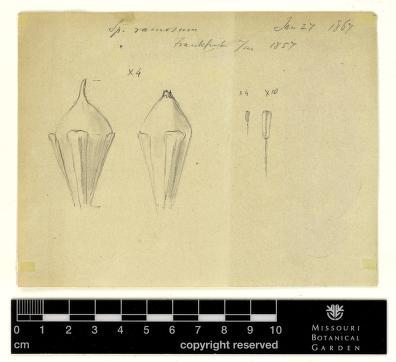 Sp. ramosum Jan 27 1867
Frankfurt a/m 1857
x4
x4 x10
0 1 2 3 4 5 6 7 8 9 10
cm copyright reserved
MISSOURI
BOTANICAL
GARDEN